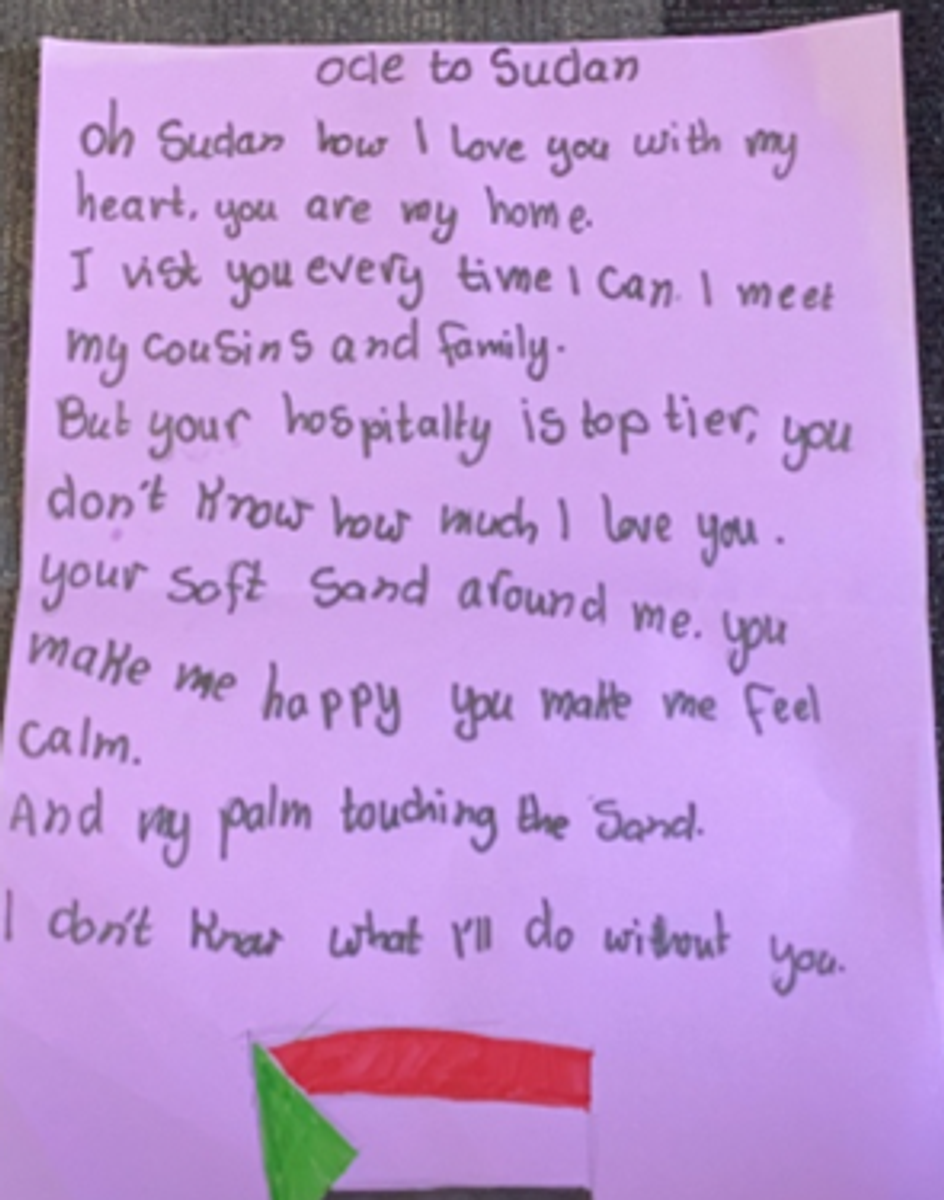 ode to Sudan
oh Sudan how I love you with my
heart. you are my home.
I vist you every time I can. I meet
my cousins and family.
But your hospitalty is top tier, you
don't know how much I love you.
your soft sand around me. you
make me happy you make me feel
calm.
And my palm touching the sand.
I don't know what I'll do without you.